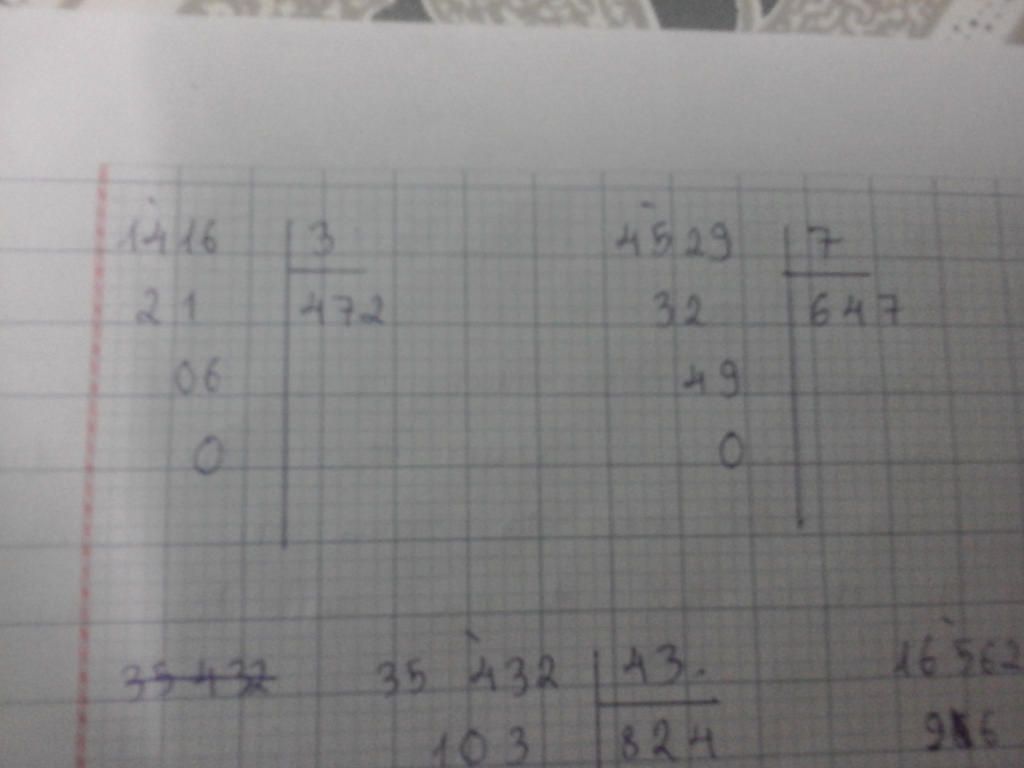 1416 3
21 472
06
0
4529 7
32 647
49
0
35 432
35 432 43.
103 824
16 562